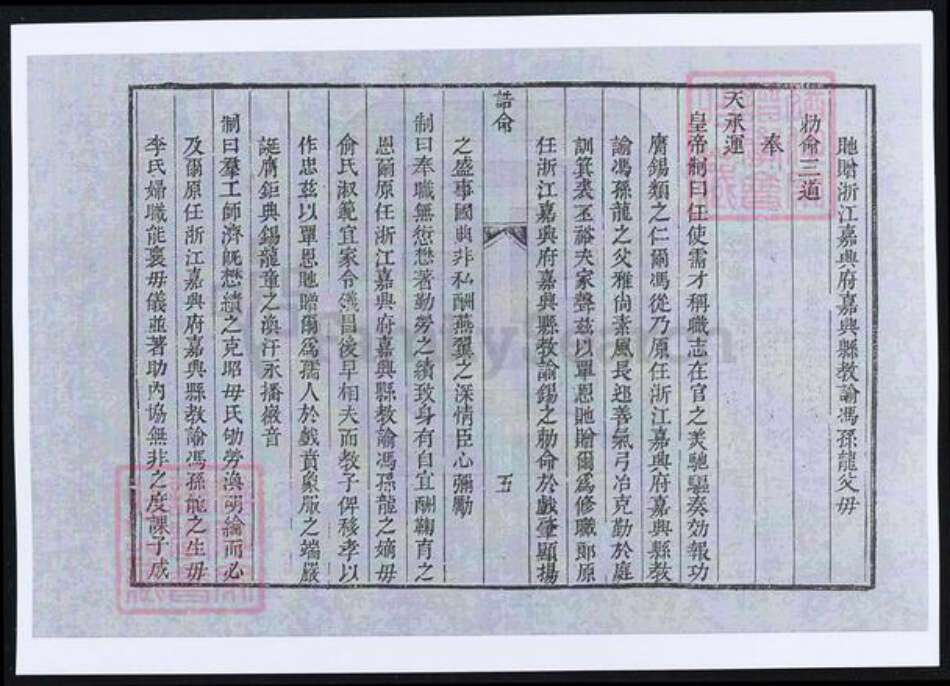 馳贈浙江嘉興府嘉興縣教諭馮孫龍父母
勅命三道
奉
天承運
皇帝制曰任使需才稱職志在官之美馳驅奏効報功
膺錫類之仁爾馮從乃原任浙江嘉興府嘉興縣教
諭馮孫龍之父雅尚素風長迎善氣弓冶克勤於庭
訓箕裘丕裕夫家聲茲以覃恩馳贈爾為修職郎原
任浙江嘉興府嘉興縣教諭錫之勅命於戲肇顯揚
誥命
五
之盛事國典非私酬燕翼之深情臣心彌勵
制曰奉職無愆懋著勤勞之績致身有自宜酬鞠育之
恩爾原任浙江嘉興府嘉興縣教諭馮孫龍之嫡母
俞氏淑範宜家令儀昌後早相夫而教子俾移孝以
作忠茲以覃恩馳贈爾為孺人於戲賁象服之端嚴
誕膺鉅典錫龍章之渙汗永播徽音
制曰羣工師濟旣懋績之克昭母氏劬勞渙硐綸而必
及爾原任浙江嘉興府嘉興縣教諭馮孫龍之生母
李氏婦職能襄母儀並著助內協無非之度課子成